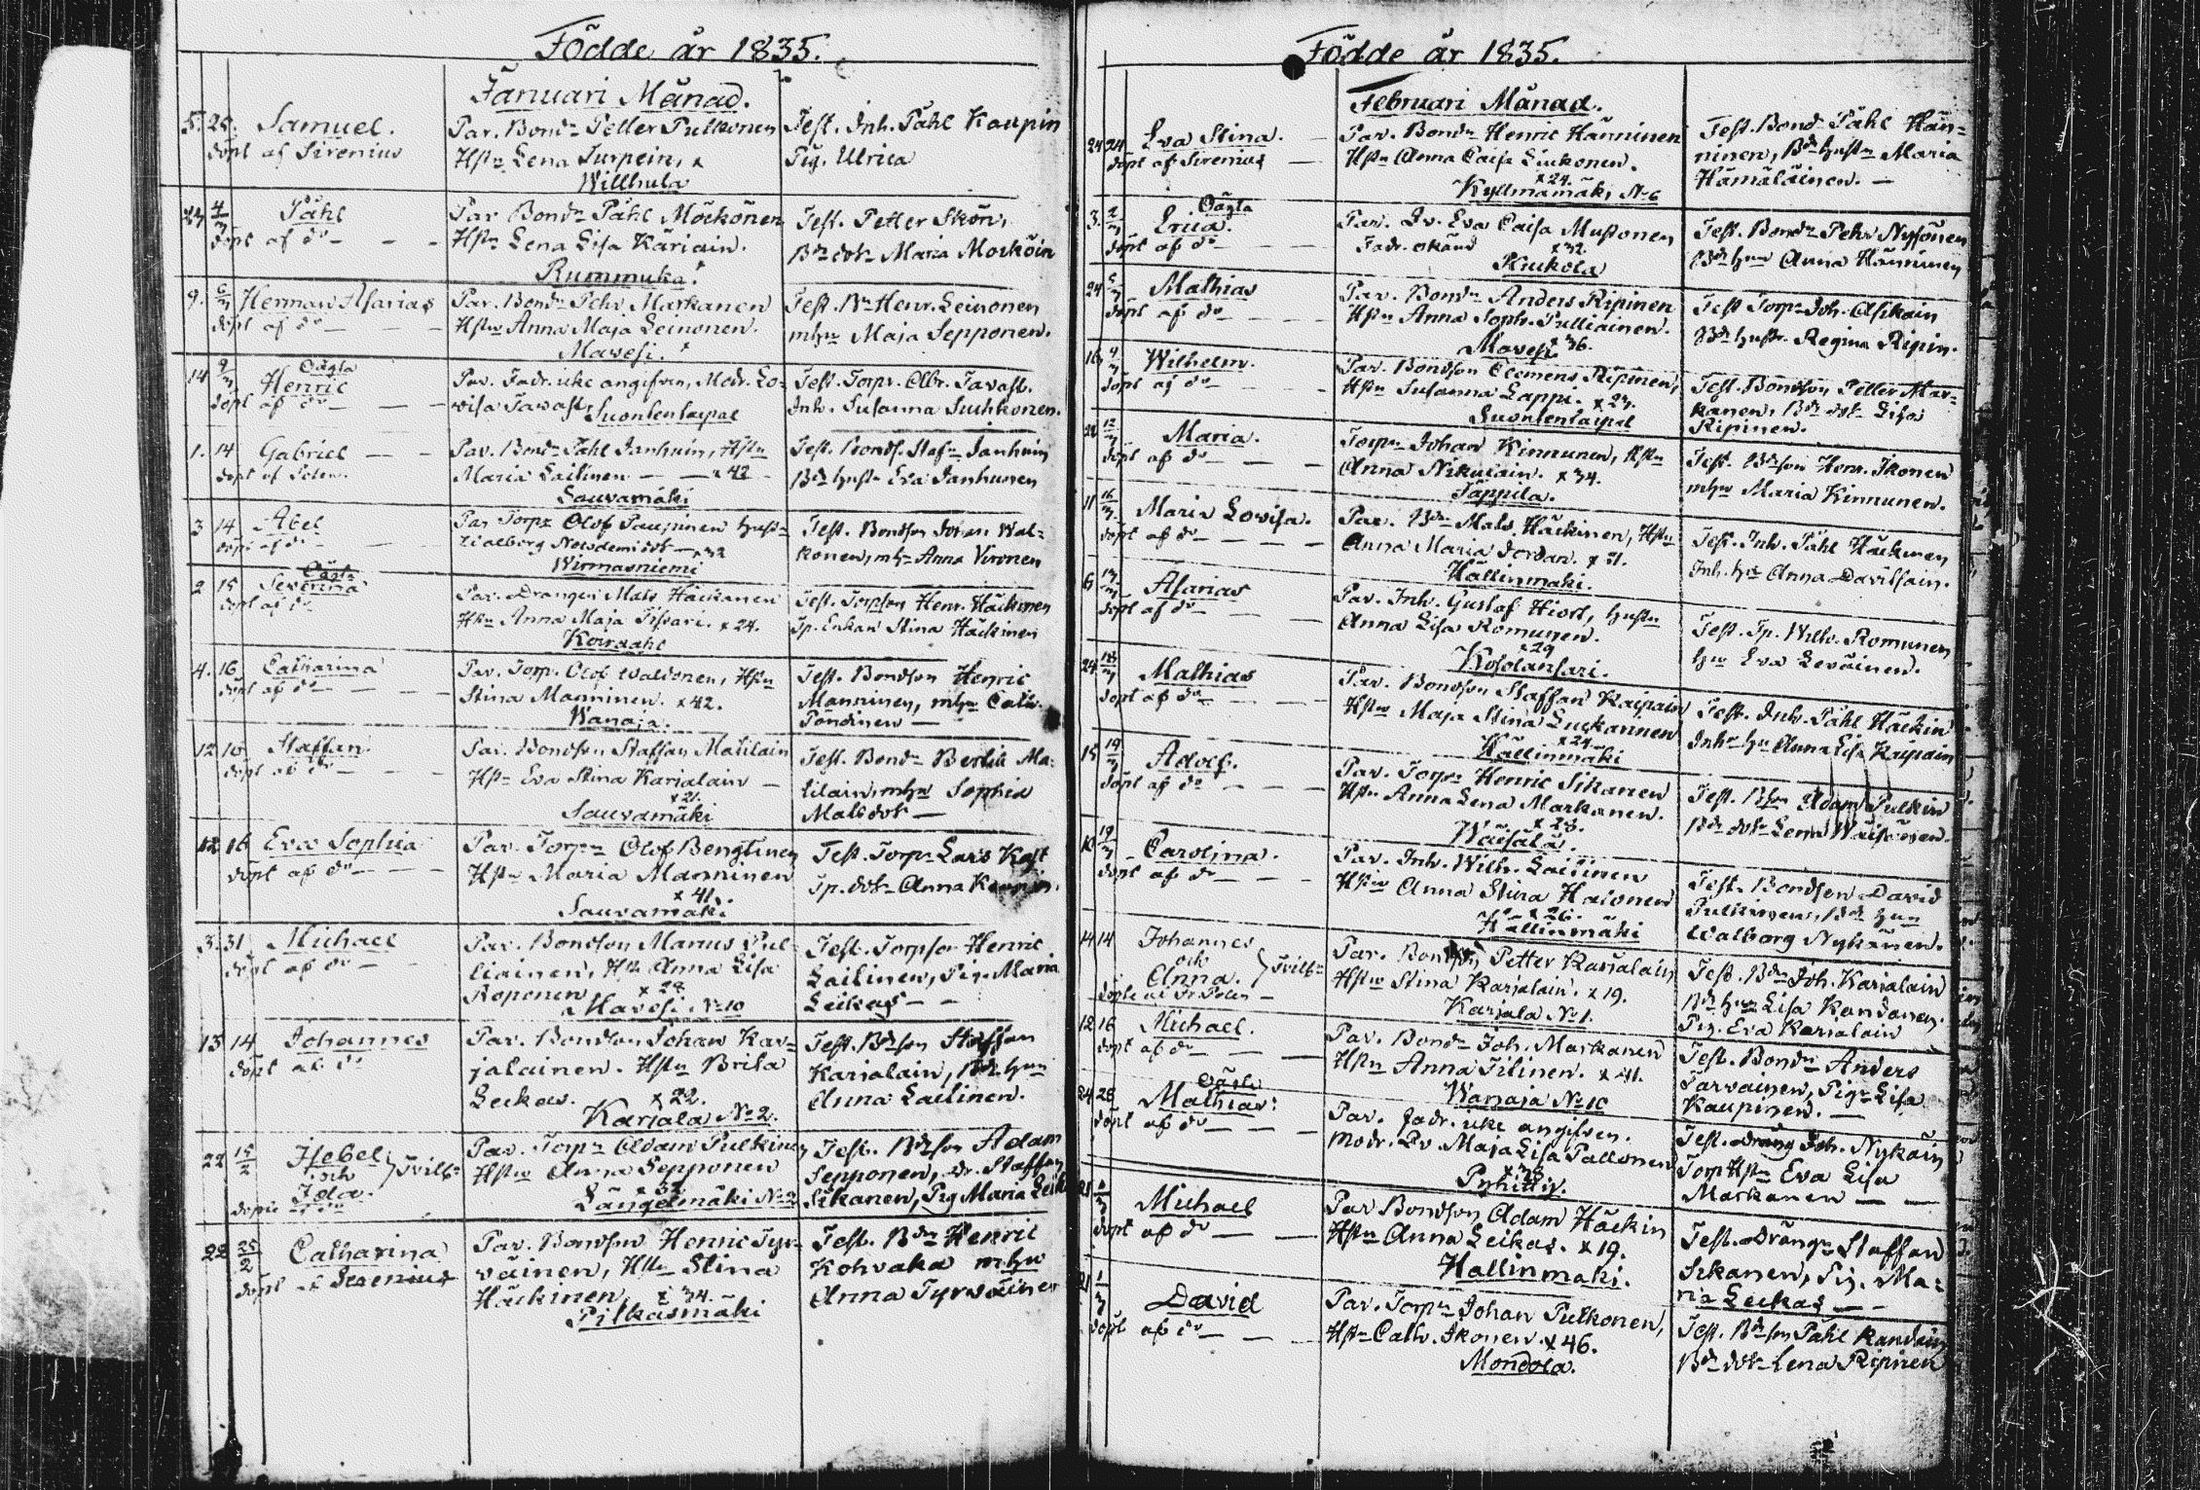 Födde år 1835.
Januari Månad.
5. 25. Samuel.
döpt af Sirenius
Par. Bonde Petter Pulkonen
Hstr Lena Turpein. x
Willhula
Test. Inh. Påhl Kaupin
Pig. Ulrica
27 4/3 Påhl
döpt af do
Par Bonde Påhl Möckönen
Hstr Lena Lisa Käriain.
Rummuka
Test. Petter Skön,
Bde dotr Maria Morköin
9. 6/3 Herman Asarias
döpt af do
Par. Bonde Pehr Markanen
Hstr Anna Maja Leinonen.
Mavesi.
Test. Bde Henr. Leinonen
mhu Maja Sepponen.
14 9/3 Oägta
Henric
döpt af do
Par. Fadr. icke angifven, Modr. Lo-
visa Tavast Suontentaipal
Test. Torpr. Albr. Tavast.
Inh. Susanna Suihkonen.
1. 14 Gabriel
döpt af
Par. Bonde Påhl Janhuin, Hstr
Maria Laitinen x 42
Sauvamäki
Test. Bonds. Stafn Janhuin
Bde hustr Eva Janhunen
3 14 Abel
döpt af do
Par Torpr Olof Paujninen hustr
Walborg x 32
Wirmasniemi
Test. Bondson Johan Wal-
konen, mhu Anna Vironen
2 15 Oägta
Severina
döpt af do
Par. Drängen Mats Häckanen
Hstr Anna Maja x 24.
Test. Torpson Henr. Häckinen
Tp. Enkan Stina Häckinen
4. 16 Catharina
döpt af do
Par. Torpr. Olof Waldonen, Hstr
Stina Manninen. x 42.
Wanaja.
Test. Bondson Henric
Manninen, mhu Cath.
Pöndinen
12 16 Staffan
döpt af do
Par. Bondson Staffan Matilain
Hstr Eva Stina Karjalain
x 21.
Sauvamäki
Test. Bonde Bertil Ma-
tilain, mhu Sophia
Matsdotr
12 16 Eva Sophia
döpt af do
Par. Torpr Olof Bengtinen
Hstr Maria Manninen
x 41.
Sauvamäki
Test. Torpr Lars Kast
Tp. dotr Anna
3. 31 Michael
döpt af do
Par. Bondson Manus Pul-
liainen, Hstr Anna Lisa
Roponen x 28
Mavesi No 10
Test. Torpson Henric
Laitinen, Pig. Maria
Leikas
13 14 Johannes
döpt af do
Par. Bondson Johan Kar-
jalainen. Hstr Brita
Leikas. x 22.
Karjala No 2.
Test. Bdeson Staffan
Karjalain, Bde hun
Anna Laitinen.
22 15/2 Hebel
och
Ida. Tvill:
döpte af do
Par. Torpr Adam Pulkinen
Hstr Anna Sepponen
Längelmäki No 2
Test. Bdeson Adam
Sepponen, Dr. Staffan
Sikanen, Pig Maria Leik
22 25/2 Catharina
döpt af Sirenius
Par. Bondson Henric Tyr-
väinen, Hstr Stina
Häckinen x 34.
Pitkäsmäki
Test. Bde Henric
Kohvaka mhu
Anna Tyrväinen
Födde år 1835.
Februari Månad.
24 24 Eva Stina.
döpt af Sirenius
Par. Bonde Henric Hänninen
Hstr Anna Caisa Liukonen.
x 24.
Kyllmämäki No 6
Test. Bonde Påhl Hän-
ninen, Bde hustr Maria
Hämäläinen.
3. 2/3 Oägta
Erica.
döpt af do
Par. Qv. Eva Caisa Mustonen
Fadr. okänd x 32.
Kukola
Test. Bonde Pehr Nyssönen
Bde hun Anna Hänninen
24 5/3 Mathias
döpt af do
Par. Bonde Anders Ripinen
Hstr Anna Soph. Pulliainen.
Mavesi x 36.
Test Torpr Joh. Asikain
Bde hustr. Regina Ripin.
16 9/3 Wilhelm.
döpt af do
Par. Bondson Clemens Ripinen,
Hstr Susanna Lappi. x 23.
Suontentaipal
Test. Bondson Petter Mar-
kanen, Bde dotr Lisa
Ripinen.
12/3 Maria.
döpt af do
Torpr Johan Kinnunen, Hstr
Anna Nikulain. x 34.
Tappila.
Test. Bdeson Henr. Ikonen
mhu Maria Kinnunen.
11 16/3 Maria Lovisa.
döpt af do
Par. Bde Mats Häckinen, Hstr
Anna Maria Jordan. x 21.
Hällinmäki.
Test. Inh. Påhl Häckinen
Inh. hu Anna Davidsain.
6 17/3 Asarias
döpt af do
Par. Inh. Gustaf Hiort, hustr
Anna Lisa Romunen.
x 29
Koloансari.
Test. Tp. Wilh. Romunen
hu Eva Leväinen.
24 18/3 Mathias
döpt af do
Par. Bondson Staffan Kaipain
Hstr Maja Stina Luckannen
x 24.
Hällinmäki
Test. Inh. Påhl Häckin
Inhr hu Anna Lisa Kaipain
15 19/3 Adolf.
döpt af do
Par. Torpr Henric Sikanen
Hstr Anna Lena Markanen.
x 28.
Waisälä.
Test. Bson Adam Pulkin
Bde dotr Lena Wäisänen.
10 19/3 Carolina.
döpt af do
Par. Inh. Wilh. Laitinen
Hstr Anna Stina Halonen
x 26.
Hällinmäki
Test. Bondson David
Pulkinen, Bde hun
Walborg Nykänen.
14 14 Johannes
och
Anna. Tvill:
Par. Bondson Petter Karjalain
Hstr Stina Karjalain. x 19.
Karjala No 1.
Test. Bde Joh. Karjalain
Bde hun Lisa Kandanen.
Pig. Eva Karjalain
12 16 Michael.
döpt af do
Par. Bonde Joh. Markanen
Hstr Anna Tilinen. x 41.
Wanaja No 10
Test. Bonde Anders
Tarvainen, Pigr Lisa
Kaupinen.
24 28 Oägta
Mathias:
döpt af do
Par. Fadr. icke angifven.
Modr. Qv Maja Lisa Pallonen
Test. Dräng Joh. Nykäin
Torp Hstr Eva Lisa
Markanen
Michael
döpt af do
Par Bondson Adam Häckin
Hstr Anna Leikas. x 19.
Hallinmäki.
Test. Drängr Staffan
Sikanen, Pig. Ma-
ria Leikas
21 1/3 David
döpt af do
Par. Torpr Johan Pulkonen,
Hstr Cath. Ikonen. x 46.
Mondola.
Test. Bdeson Påhl Kandain
Bde dotr Lena Ripinen